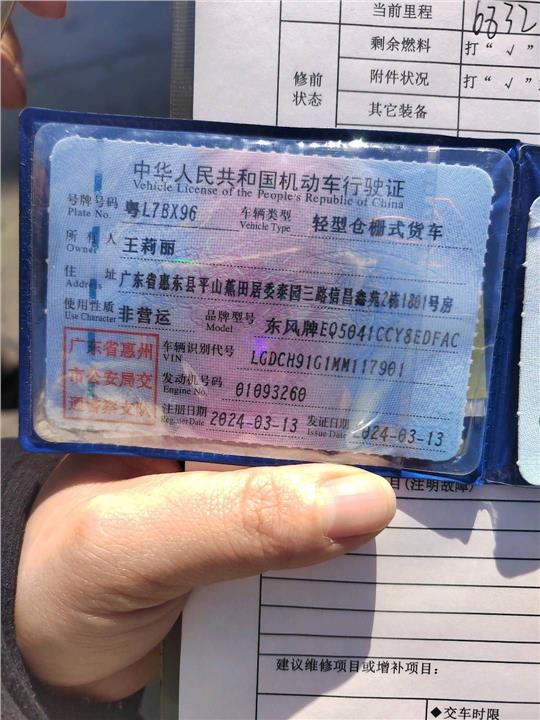 当前里程 6832
剩余燃料 打“√”
修前状态
附件状况 打“√”
其它装备
中华人民共和国机动车行驶证
Vehicle License of the People's Republic of China
号牌号码 粤L7BX96 车辆类型 轻型仓栅式货车
Plate No. Vehicle Type
所有人 王莉丽
Owner
住址 广东省惠东县平山蕉田居委泰园三路信昌鑫苑2栋1801号房
Address
使用性质 非营运 品牌型号 东风牌EQ5041CCY8EDFAC
Use Character Model
广东省惠州市公安局交通警察支队
车辆识别代号 LGDCH91G1MM117901
VIN
发动机号码 01093260
Engine No.
注册日期 2024-03-13 发证日期 2024-03-13
Register Date Issue Date
目(注明故障)
建议维修项目或增补项目:
◆交车时限